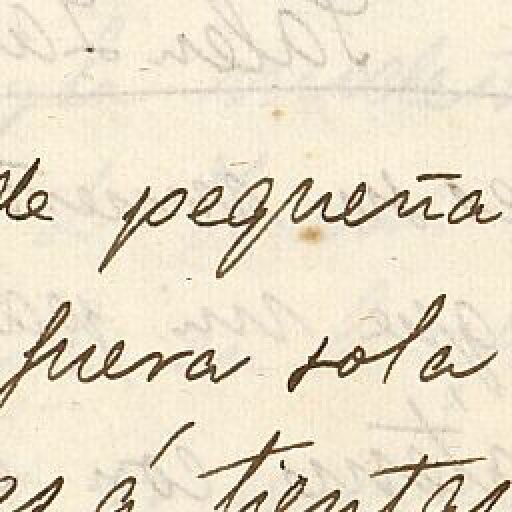 de pequeña
fuera sola
es á tientas